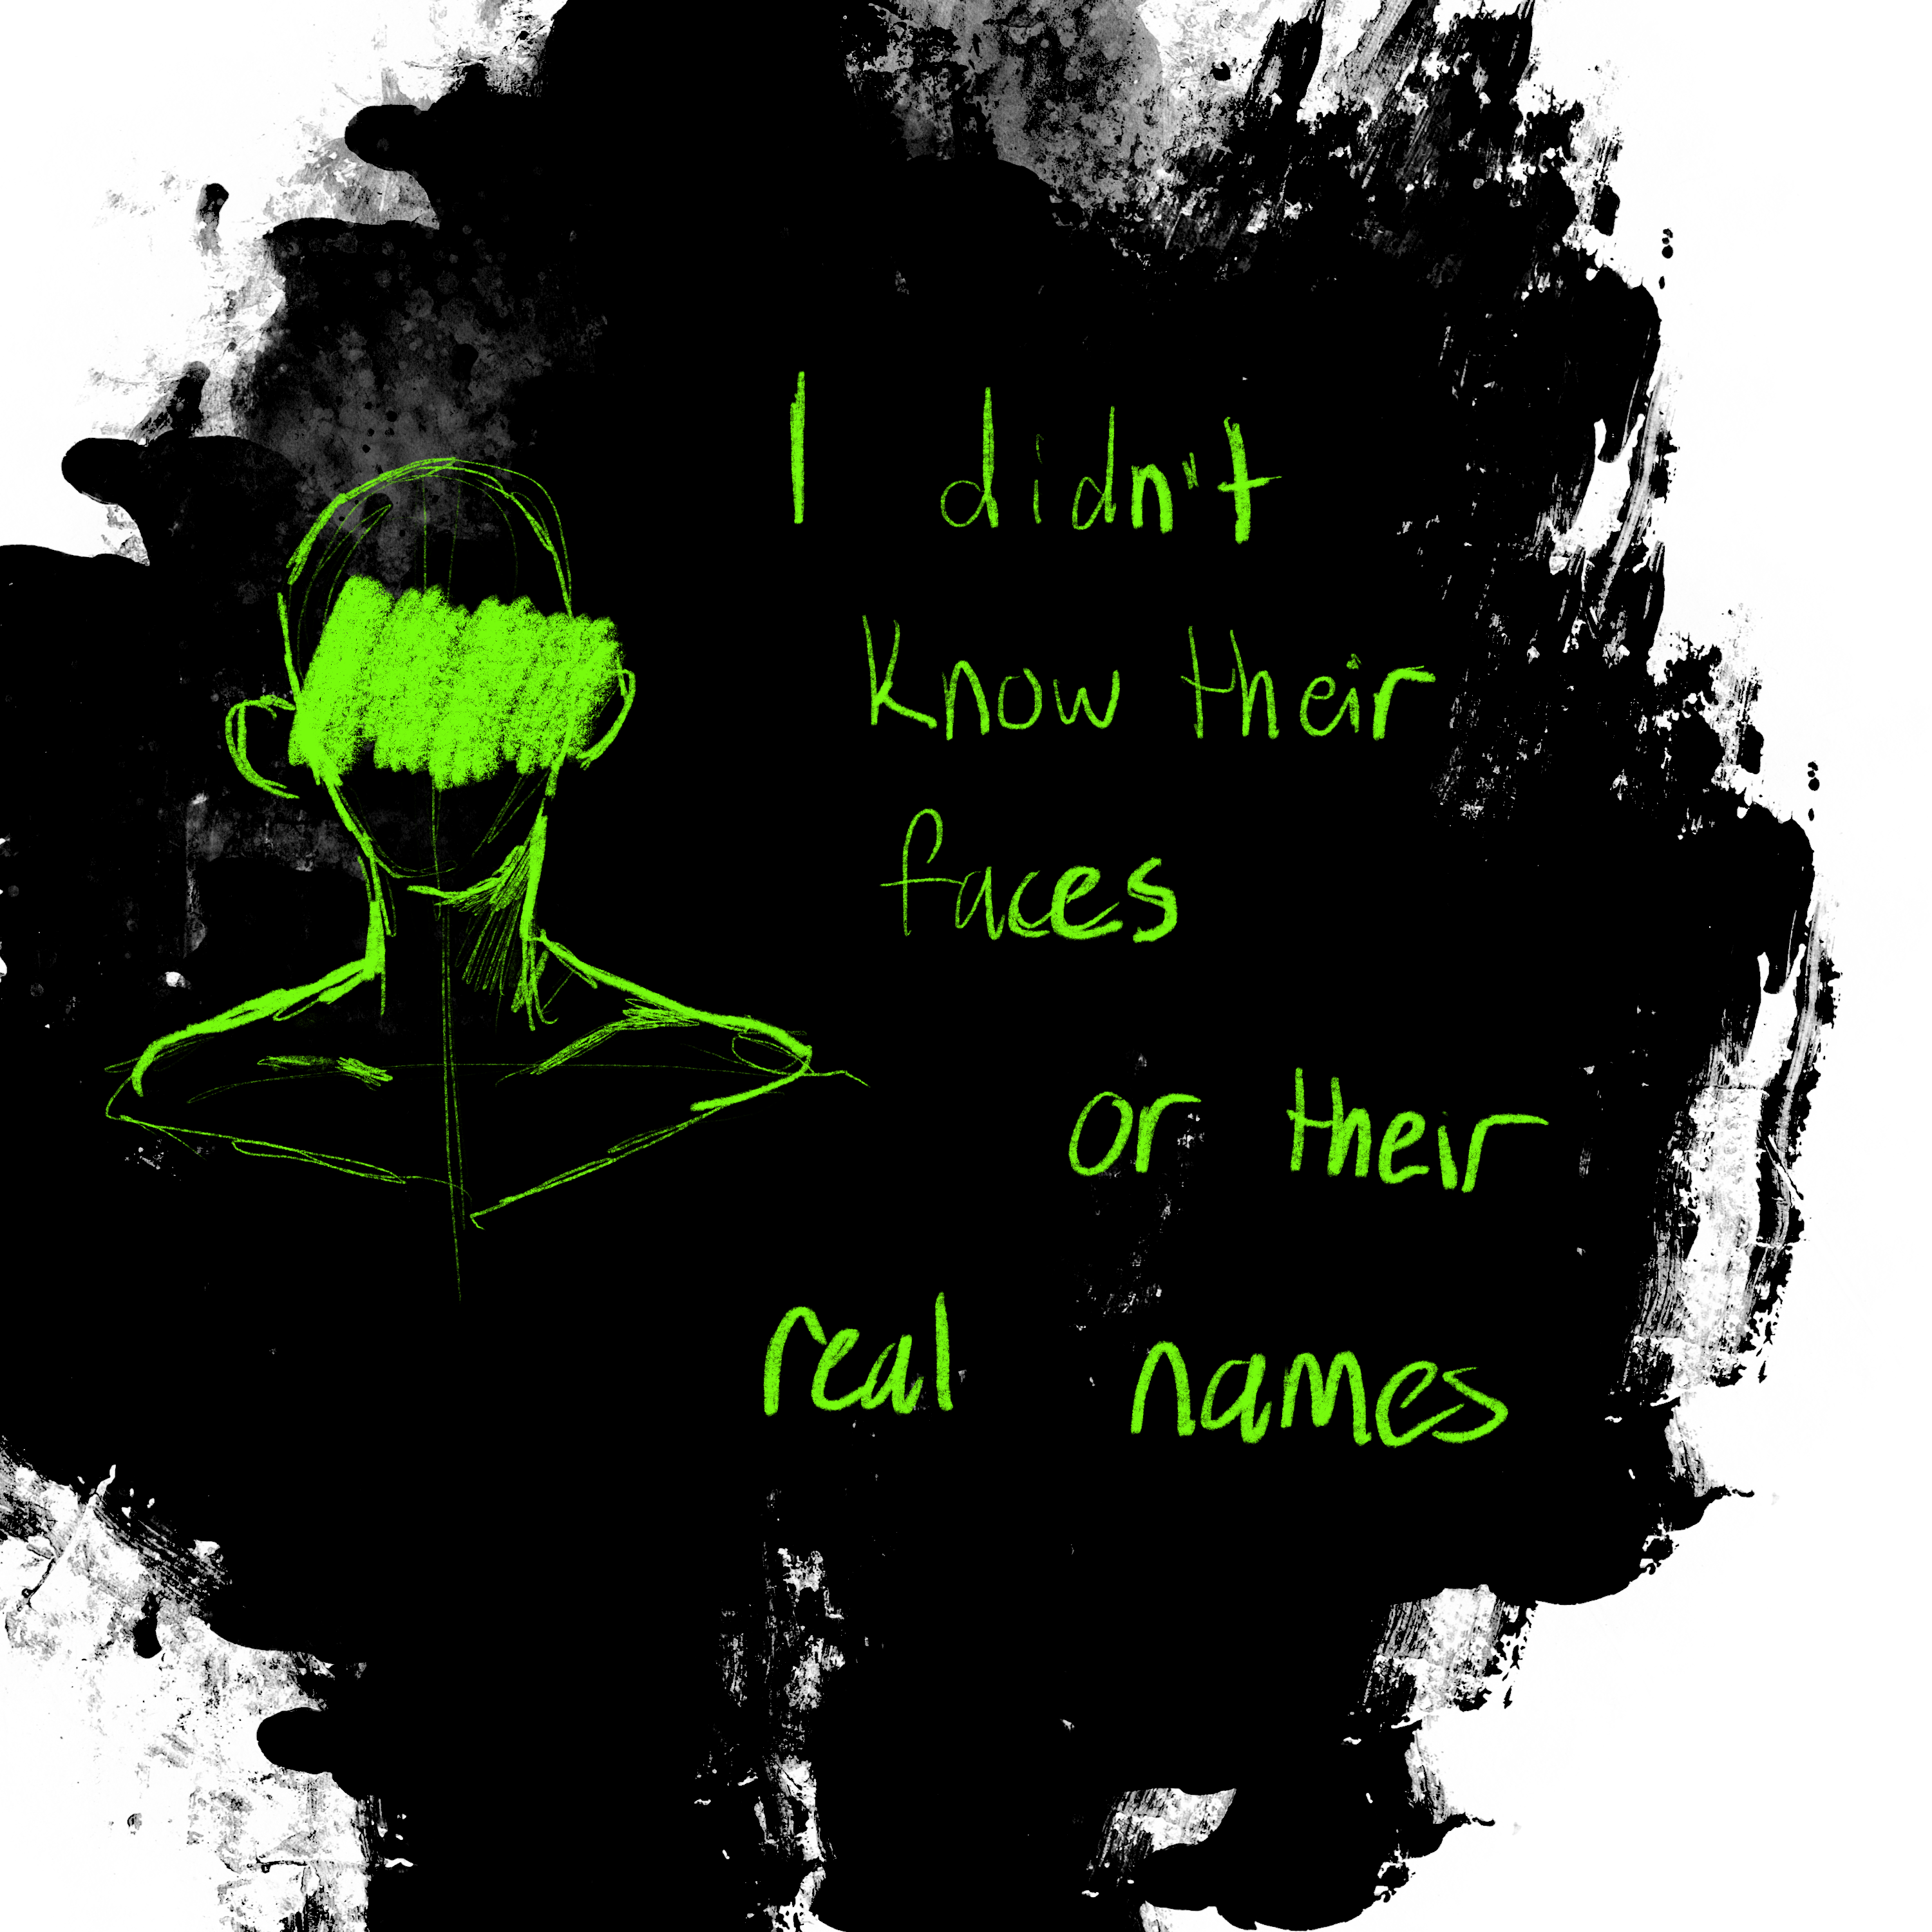 I didn't
know their
faces
or their
real names